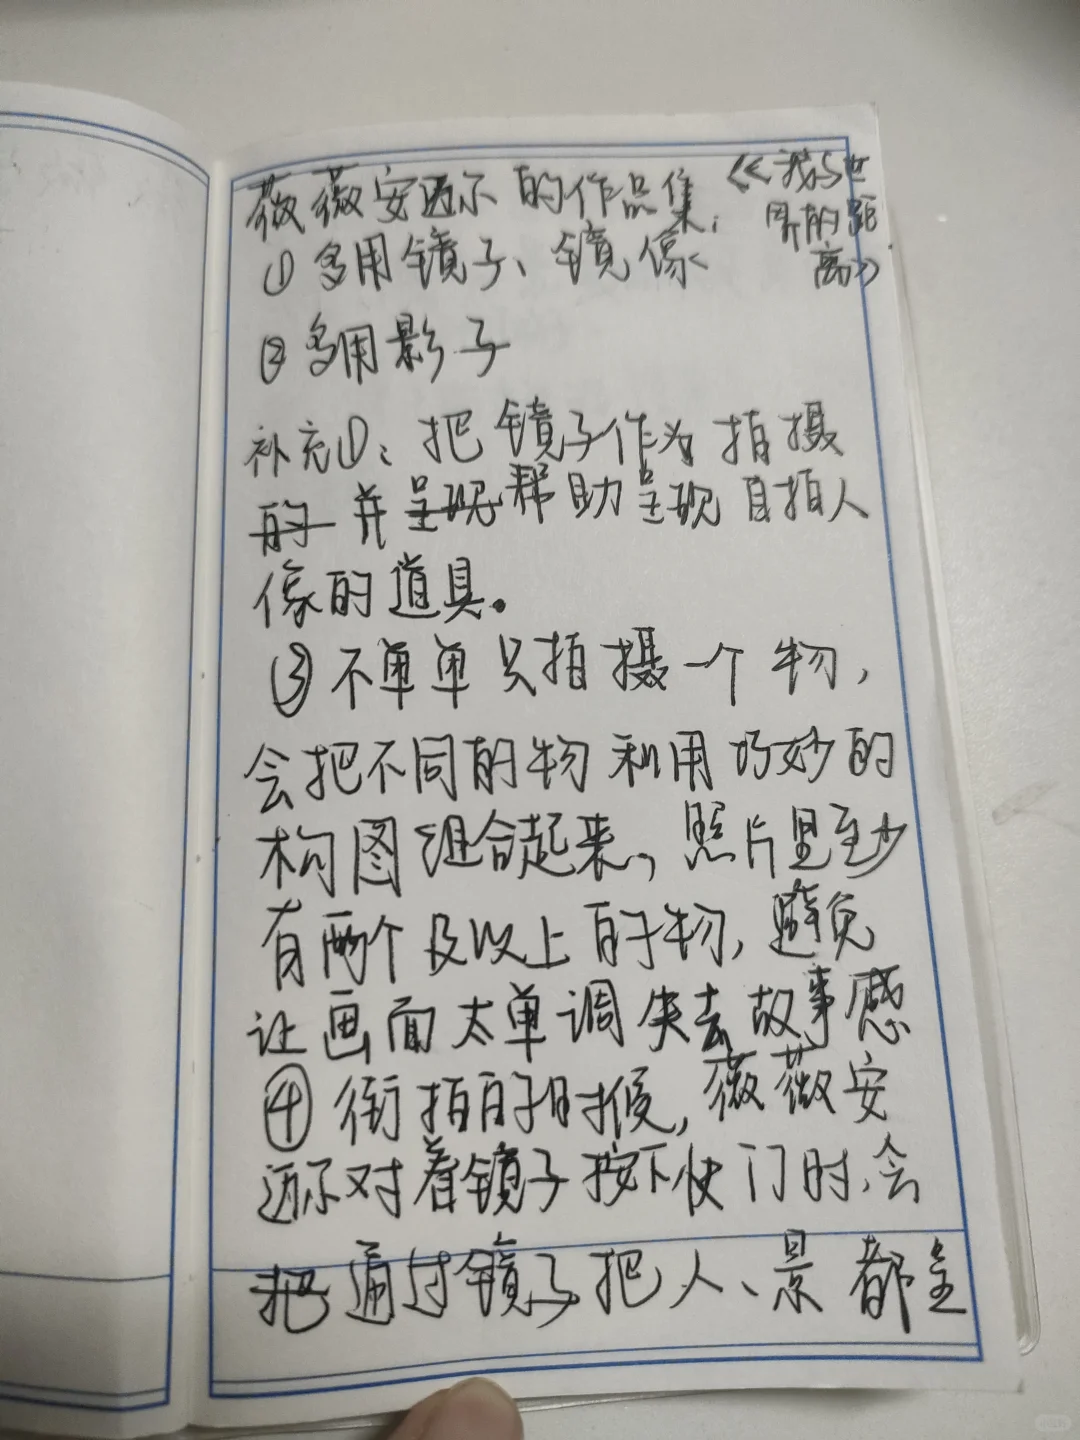 薇薇安迈尔的作品集,《我与世
界的距
离》
①多用镜子、镜像
②多用影子
补充①:把镜子作为拍摄
的并呈现帮助呈现自拍人
像的道具。
③不单单只拍摄一个物,
会把不同的物利用巧妙的
构图组合起来,照片里至少
有两个及以上的物,避免
让画面太单调失去故事感
④街拍的时候,薇薇安
迈尔对着镜子按下快门时,会
把通过镜子把人、景都呈